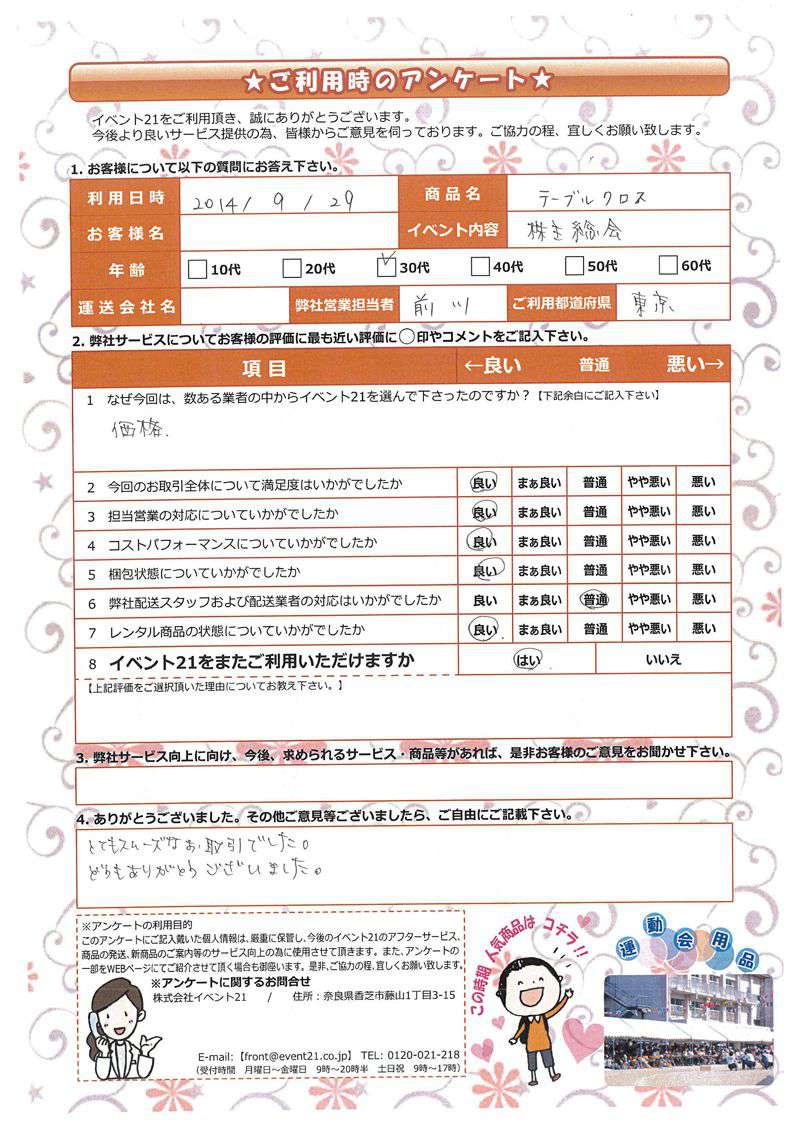 ★ご利用時のアンケート★
イベント21をご利用頂き、誠にありがとうございます。
今後より良いサービス提供の為、皆様からご意見を伺っております。ご協力の程、宜しくお願い致します。
1. お客様について以下の質問にお答え下さい。
利用日時 2014/9/29 商品名 テーブルクロス
お客様名 イベント内容 株主総会
年齢 10代 20代 30代 40代 50代 60代
運送会社名 弊社営業担当者 前川 ご利用都道府県 東京
2. 弊社サービスについてお客様の評価に最も近い評価に○印やコメントをご記入下さい。
項目 ←良い 普通 悪い→
1 なぜ今回は、数ある業者の中からイベント21を選んで下さったのですか？【下記余白にご記入下さい】
価格.
2 今回のお取引全体について満足度はいかがでしたか 良い まぁ良い 普通 やや悪い 悪い
3 担当営業の対応についていかがでしたか 良い まぁ良い 普通 やや悪い 悪い
4 コストパフォーマンスについていかがでしたか 良い まぁ良い 普通 やや悪い 悪い
5 梱包状態についていかがでしたか 良い まぁ良い 普通 やや悪い 悪い
6 弊社配送スタッフおよび配送業者の対応はいかがでしたか 良い まぁ良い 普通 やや悪い 悪い
7 レンタル商品の状態についていかがでしたか 良い まぁ良い 普通 やや悪い 悪い
8 イベント21をまたご利用いただけますか はい いいえ
【上記評価をご選択頂いた理由についてお教え下さい。】
3. 弊社サービス向上に向け、今後、求められるサービス・商品等があれば、是非お客様のご意見をお聞かせ下さい。
4. ありがとうございました。その他ご意見等ございましたら、ご自由にご記載下さい。
とてもスムーズなお取引でした。
どうもありがとうございました。
※アンケートの利用目的
このアンケートにご記入戴いた個人情報は、厳重に保管し、今後のイベント21のアフターサービス、
商品の発送、新商品のご案内等のサービス向上の為に使用させて頂きます。また、アンケートの
一部をWEBページにてご紹介させて頂く場合も御座います。是非、ご協力の程、宜しくお願い致します。
※アンケートに関するお問合せ
株式会社イベント21 / 住所：奈良県香芝市藤山1丁目3-15
E-mail:【front@event21.co.jp】 TEL: 0120-021-218
（受付時間 月曜日～金曜日 9時～20時半 土日祝 9時～17時）
この時期 人気商品は コチラ!!
運動会用品